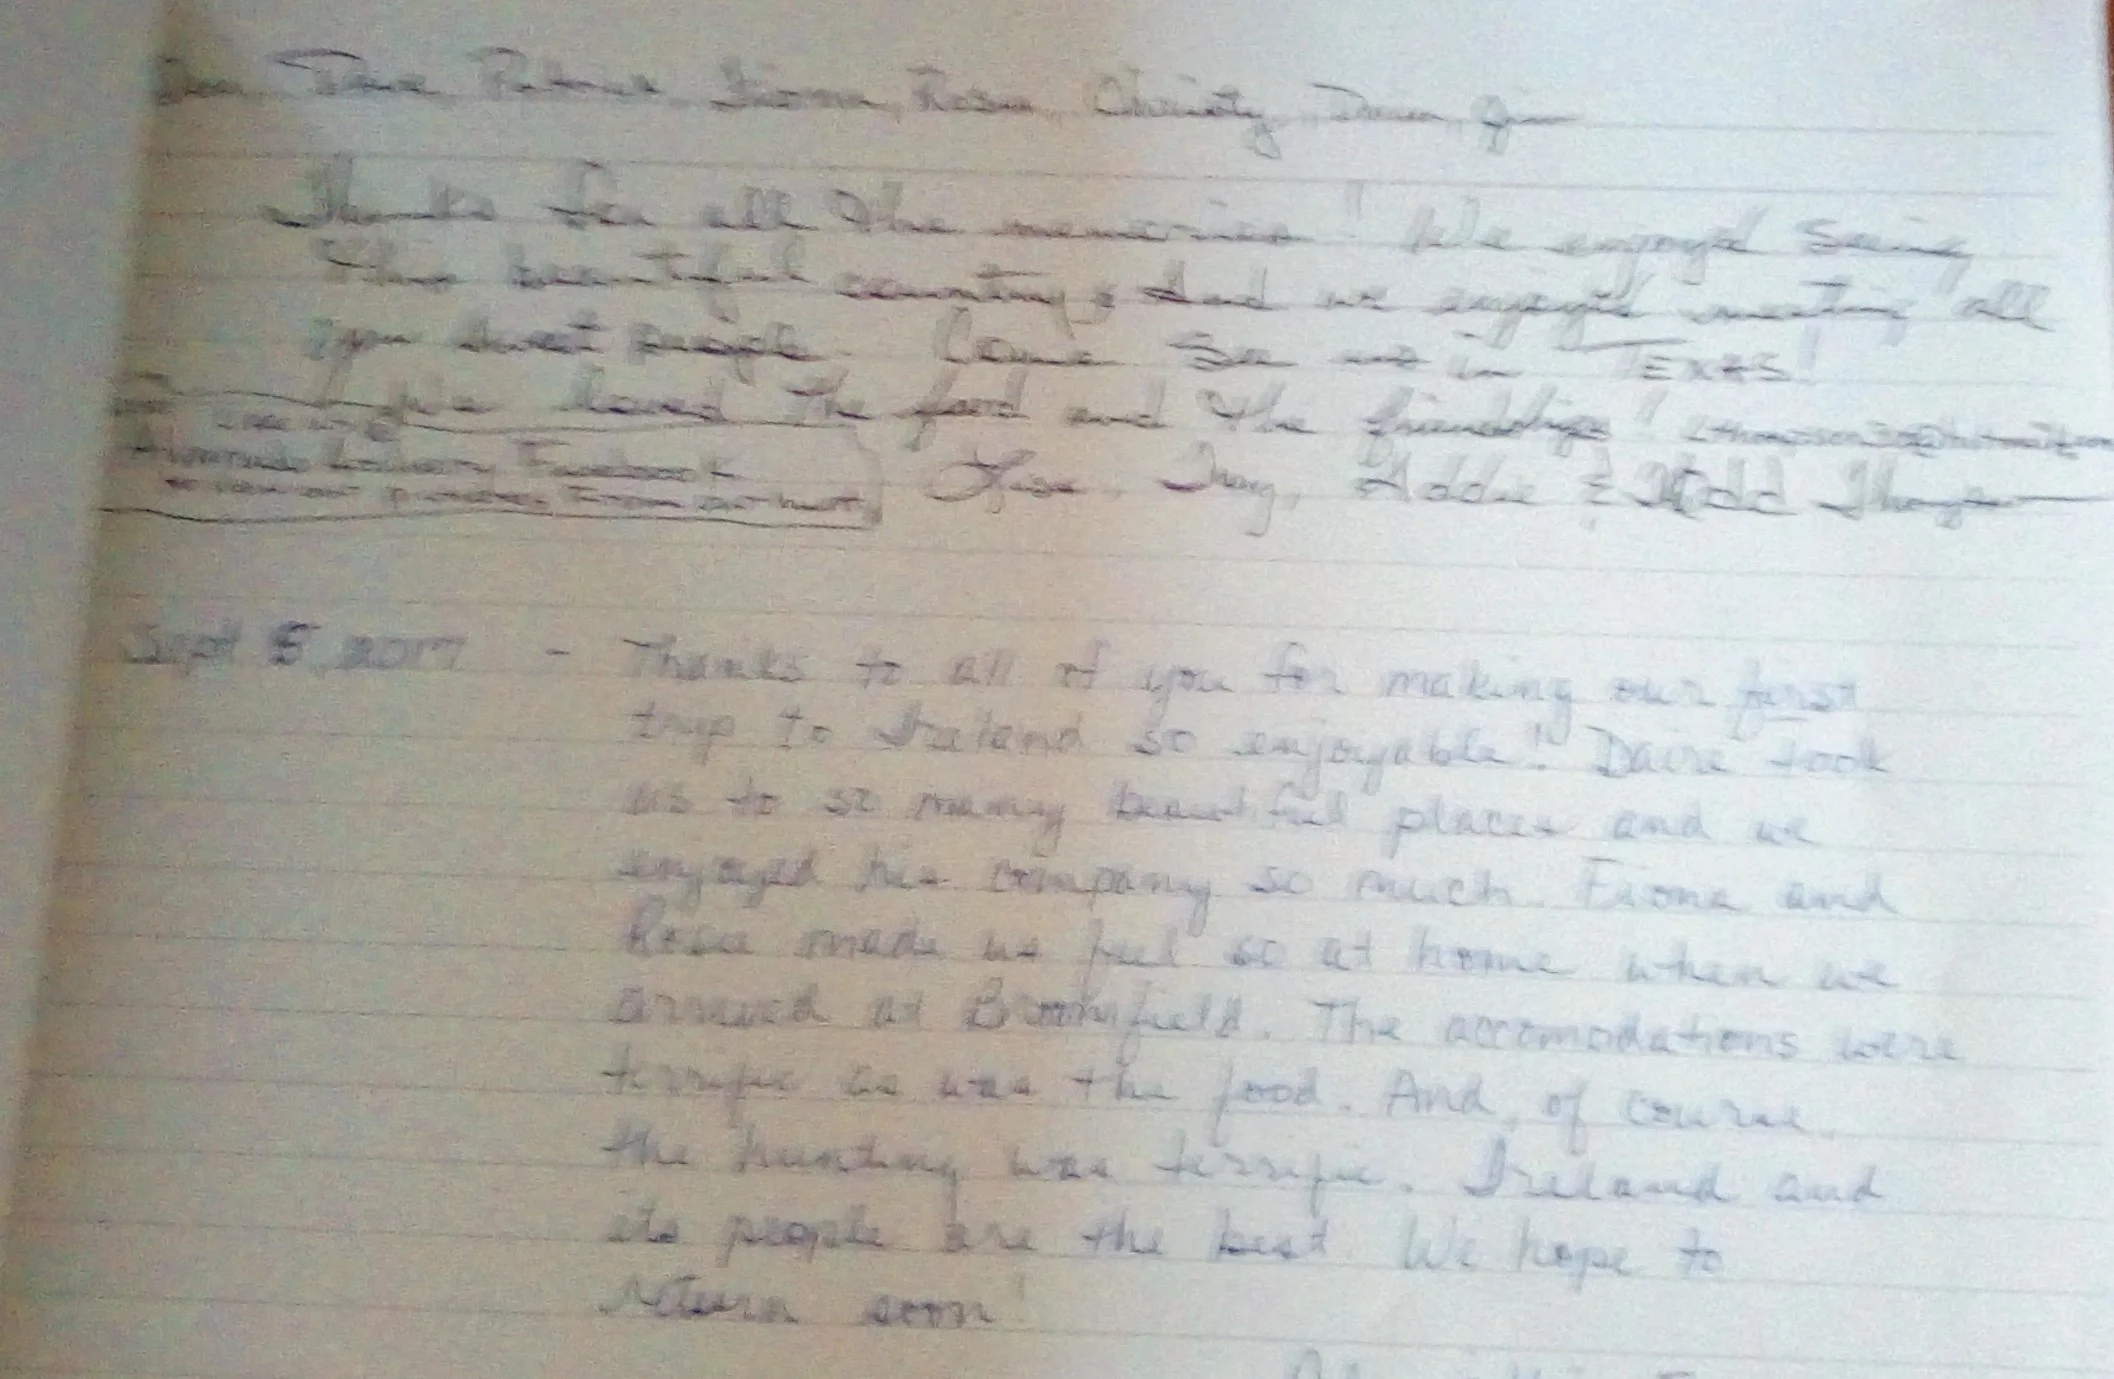 Dear Daire, Patrick, Fiona, Rosie, Christy, Jim
Thanks for all the memories! We enjoy'd Seeing
This beautiful country & And we enjoy'd meeting all
you sweet people. Come See us in TEXAS!
We loved The food and The friendships!
Facebook
to view our pictures From our hunt
Troy, Addie & Todd
Sept 5, 2017 - Thanks to all of you for making our first
trip to Ireland so enjoyable! Daire took
us to so many beautiful places and we
enjoyed his company so much. Fiona and
Rosie made us feel so at home when we
arrived at Broomfield. The accomodations were
terrific as was the food. And, of course,
the hunting was terrific. Ireland and
its people are the best. We hope to
return soon!